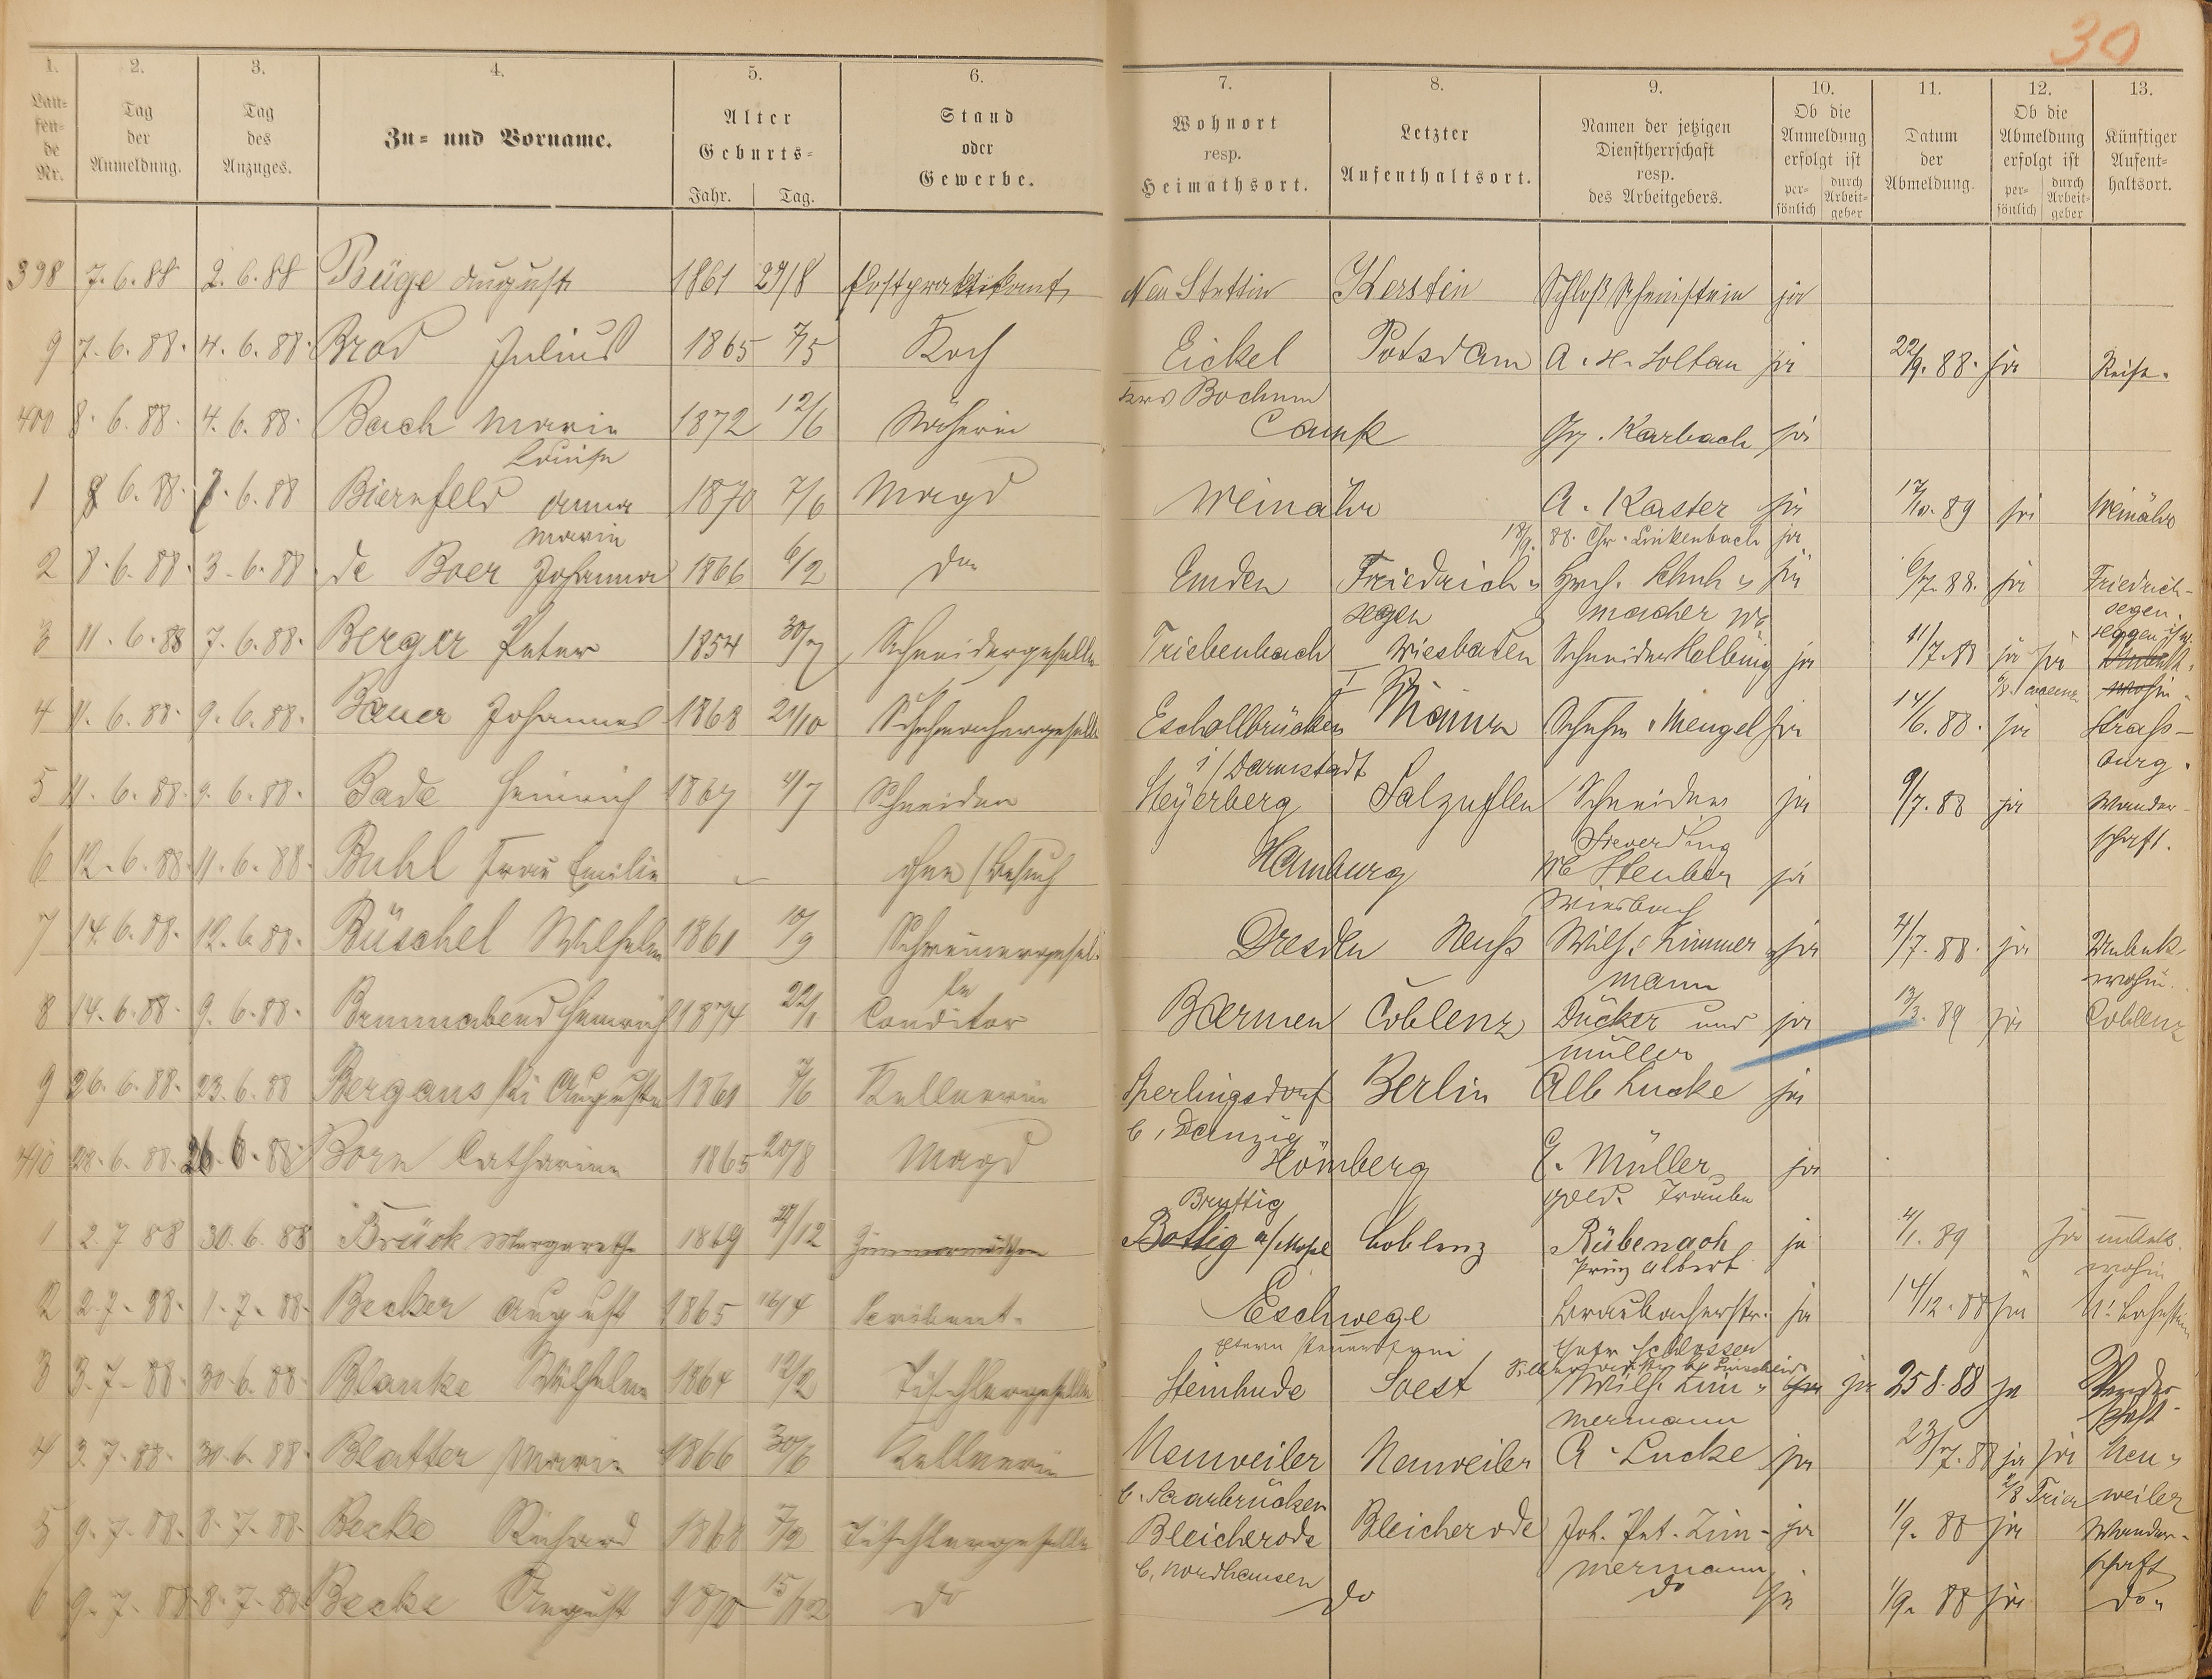 30
1. 2. 3. 4. 5. 6. 7. 8. 9. 10. 11. 12. 13.
Laufende Nr. Tag der Anmeldung. Tag des Anzuges. Zu- und Vorname. Alter Geburts- Jahr. Tag. Stand oder Gewerbe. Wohnort resp. Heimathsort. Letzter Aufenthaltsort. Namen der jetzigen Dienstherrschaft resp. des Arbeitgebers. Ob die Anmeldung erfolgt ist persönlich durch Arbeitgeber Datum der Abmeldung. Ob die Abmeldung erfolgt ist persönlich durch Arbeitgeber Künftiger Aufenthaltsort.
398 7.6.88 2.6.88 Büge August 1861 29/8 Postpraktikant Neu Stettin Kerstin Schloß ja
9 7.6.88. 4.6.88. Brod Julius 1865 7/5 Koch Eickel Potsdam A. H. Soltau ja 22/9.88. ja Reise.
Krs. Bochum
400 8.6.88. 4.6.88. Bach Marie 1872 12/6 Näherin Camp Gg. Karbach ja
Louise
1 8 6.88. 7.6.88 Biernfeld Anna 1870 7/6 Magd Weinähr A. Kaster ja 17/10.89 ja Weinähr
Marie 18/9. 88. Chr. Linkenbach ja
2 8.6.88. 3.6.88. de Boer Johanna 1866 6/2 do Emden Friedrich- Hrch. Schuh- ja 6/7.88. ja Friedrich-
segen macher We segen.
3 11.6.88 7.6.88. Berger Peter 1854 30/7 Schneidergeselle Triebenbach Wiesbaden Schneider Helbing ja 11/7.88 ja ja
4 11.6.88. 9.6.88. Bauer Johannes 1868 21/10 Schuhmachergeselle Eschollbrücken Mainz Schuhm. Mengel ja 14/6.88. ja Straß-
i/Darmstadt burg.
5 11.6.88. 9.6.88. Bade Heinrich 1867 4/7 Schneider Heyerberg Salzuflen Schneider ja 9/7.88 ja Wander-
Sieverding schaft.
6 12.6.88. 11.6.88. Buhl Frau Emilie - ohne (Besuch Hamburg We Steuber ja
Wiesbach
7 14.6.88. 12.6.88. Büschel Wilhelm 1861 10/9 Schreinergesel- Dresden Neuß Wilh. Zimmer- ja 4/7.88. ja Unbek.
le mann wohin.
8 14.6.88. 9.6.88. Brummabend Heinrich 1874 22/1 Conditor Barmen Coblenz Dücker und ja 13/3.89 ja Coblenz
Müller
9 26.6.88. 23.6.88 Bergans Auguste 1861 7/6 Kellnerin Sperlingsdorf Berlin Alb Lucke ja
b. Danzig
410 28.6.88. 26.6.88 Born Catharina 1865 20/8 Magd Hömberg E. Müller ja
gold. Traube
Bruttig
1 2.7 88 30.6.88 Brück Margarethe 1869 27/12 Zimmermädchen Bottig a/Mosel Coblenz Rübenach ja 4/1.89 ja unbek.
Prinz Albert wohin
2 2.7.88. 1.7.88. Becker August 1865 16/4 Scribent. Eschwege Braubacherstr. ja 14/12.88 ja N. Lahnstein
3 3.7.88. 30.6.88. Blanke Wilhelm 1864 12/2 Tischlergeselle Steinhude Soest Wilh. Zim- ja ja 25 8.88 ja Wander
mermann schaft
4 3.7.88. 30.6.88. Blatter Maria 1866 30/6 Kellnerin Neuweiler Neuweiler A. Lucke ja 23/7.88 ja ja Neu-
b. Saarbrücken 2/8 Trier weiler
5 9.7.88. 8.7.88. Becke Richard 1868 7/2 Tischlergeselle Bleicherode Bleicherode Joh. Pet. Zim- ja 1/9.88 ja Wander-
b. Nordhausen mermann schaft
6 9.7.88 8.7.88. Becke August 1870 15/12 do do do ja 1/9. 88 ja do.